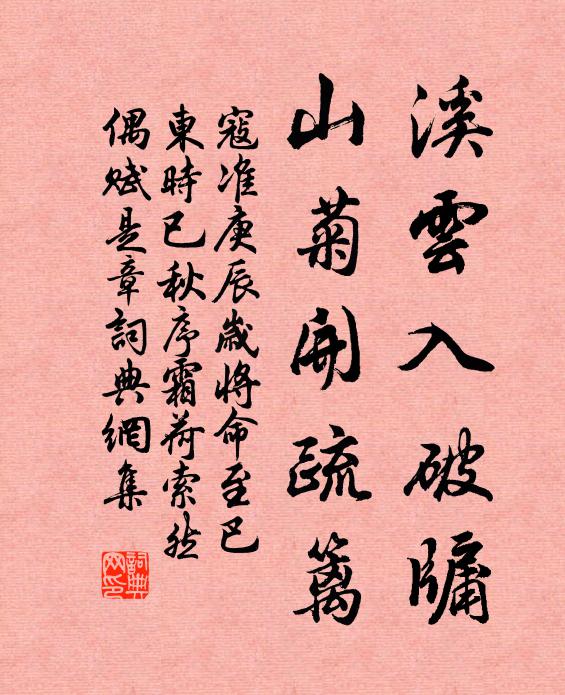 溪雲入破牖
山菊開疏籬
寇准庚辰歲將命至巴
東時已秋序霜荷索然
偶赋是章詞典網集
詞典网印